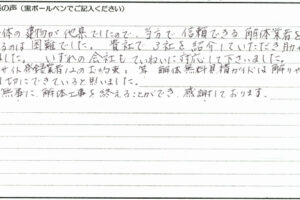 の声（黒ボールペンでご記入ください）
体の建物が他県でしたので、当方で信頼できる解体業者を
るのは困難でした。貴社で3社を紹介していただき助か
ました。いずれの会社もていねいに対応して下さいました。
サイト 業者12のお約束 解体無料見積ガイドは解りや
切にできていると思いました。
無事に解体工事を終えることができ、感謝しております。